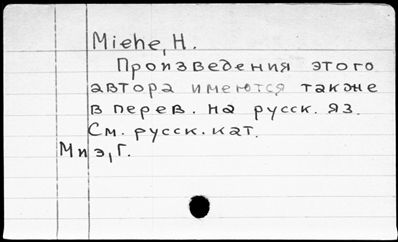 Miehe, H.
Произведения этого
автора имеются также
в перев. на русск. яз.
См. русск. кат.
Миэ, Г.